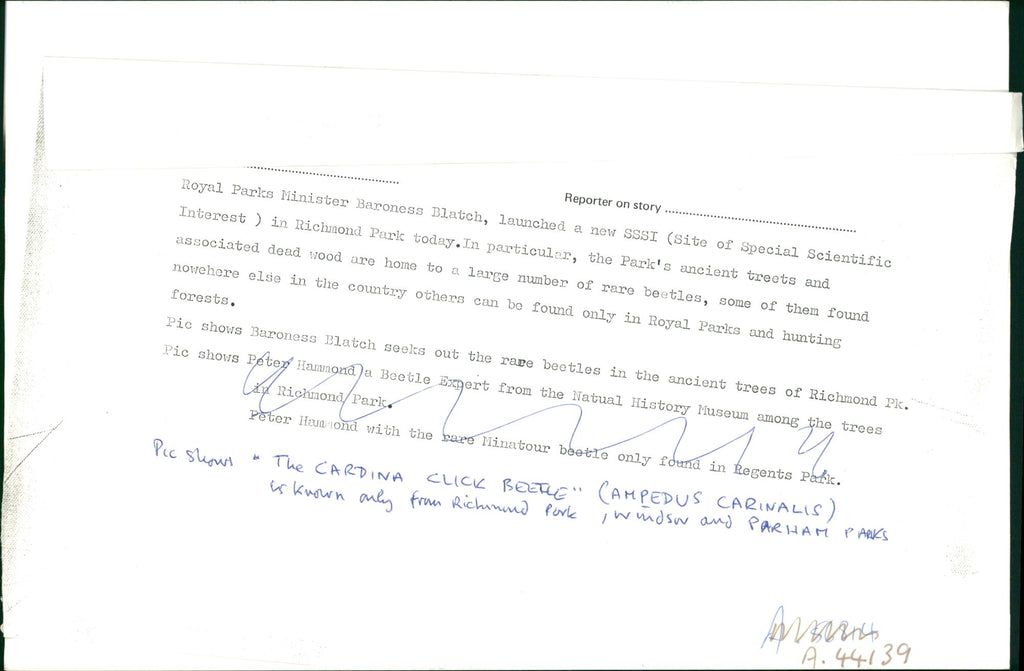 Reporter on story
Royal Parks Minister Baroness Blatch, launched a new SSSI (Site of Special Scientific
Interest ) in Richmond Park today.In particular, the Park's ancient treets and
associated dead wood are home to a large number of rare beetles, some of them found
nowehere else in the country others can be found only in Royal Parks and hunting
forests.
Pic shows Baroness Blatch seeks out the rare beetles in the ancient trees of Richmond Pk.
Pic shows Peter Hammond a Beetle Expert from the Natual History Museum among the trees
in Richmond Park.
Peter Hammond with the rare Minatour beetle only found in Regents Park.
Pic Shows "The CARDINA CLICK BEETLE" (AMPEDUS CARINALIS)
is known only from Richmond Park, Windsor and PARHAM PARKS
A.44139